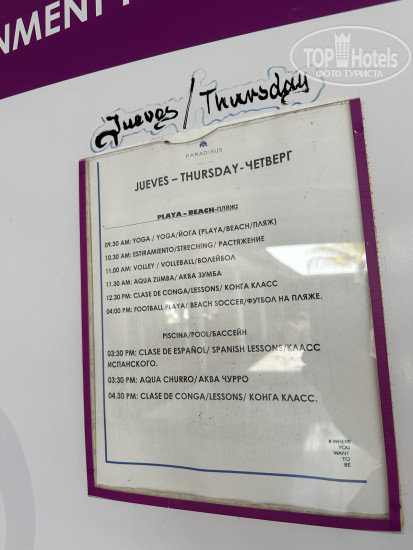 NMENT
TOP Hotels
ФОТО ТУРИСТА
Jueves / Thursday
PARADISUS
JUEVES – THURSDAY - ЧЕТВЕРГ
PLAYA – BEACH-ПЛЯЖ:
09.30 AM: YOGA / YOGA/ЙОГА (PLAYA/BEACH/ПЛЯЖ)
10.30 AM: ESTIRAMIENTO/STRECHING/ РАСТЯЖЕНИЕ
11.00 AM: VOLLEY / VOLLEBALL/ВОЛЕЙБОЛ
11.30 AM: AQUA ZUMBA/ АКВА ЗУМБА
12:30 PM: CLASE DE CONGA/LESSONS/ КОНГА КЛАСС
04:00 PM: FOOTBALL PLAYA/ BEACH SOCCER/ФУТБОЛ НА ПЛЯЖЕ.
PISCINA/POOL/БАССЕЙН
03:30 PM: CLASE DE ESPAÑOL/ SPANISH LESSONS/КЛАСС
ИСПАНСКОГО.
03:30 PM: AQUA CHURRO/АКВА ЧУРРО
04.30 PM: CLASE DE CONGA/LESSONS/ КОНГА КЛАСС.
# WHERE
YOU
WANT
TO
BE